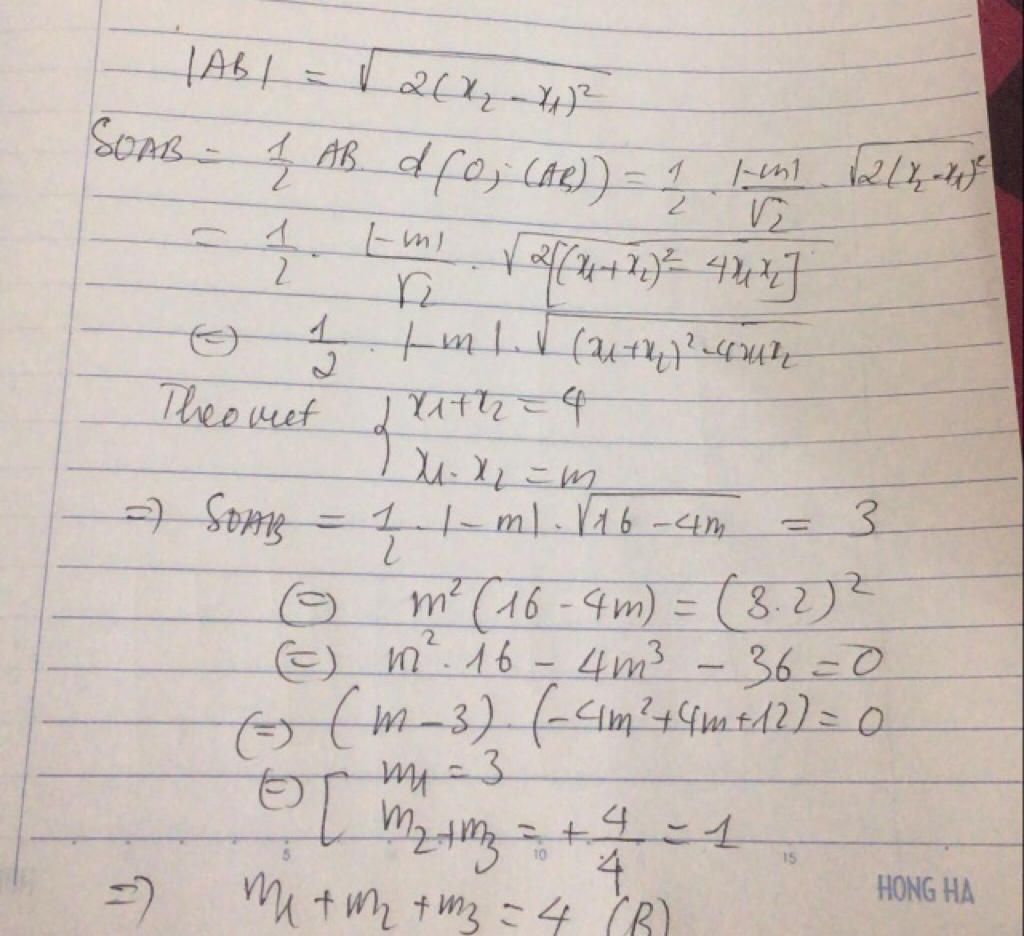 |AB| = √2(x₂ - x₁)²
SOAB = 1/2 AB d(O; (AB)) = 1/2 . |-m|/√2 . √2(x₂-x₁)²
= 1/2 . |-m|/√2 . √2[(x₁+x₂)² - 4x₁x₂]
(=) 1/2 . |-m| . √(x₁+x₂)² - 4x₁x₂
Theo viet { x₁+x₂ = 4
x₁. x₂ = m
=) SOAB = 1/2 . |-m| . √16 - 4m = 3
(=) m² (16 - 4m) = (3.2)²
(=) m² . 16 - 4m³ - 36 = 0
(=) (m - 3) . (-4m²+4m+12) = 0
(=) [ m₁ = 3
m₂+m₃ = +4/4 = 1
5 10 15
=) m₁ + m₂ + m₃ = 4 (B)
HONG HA